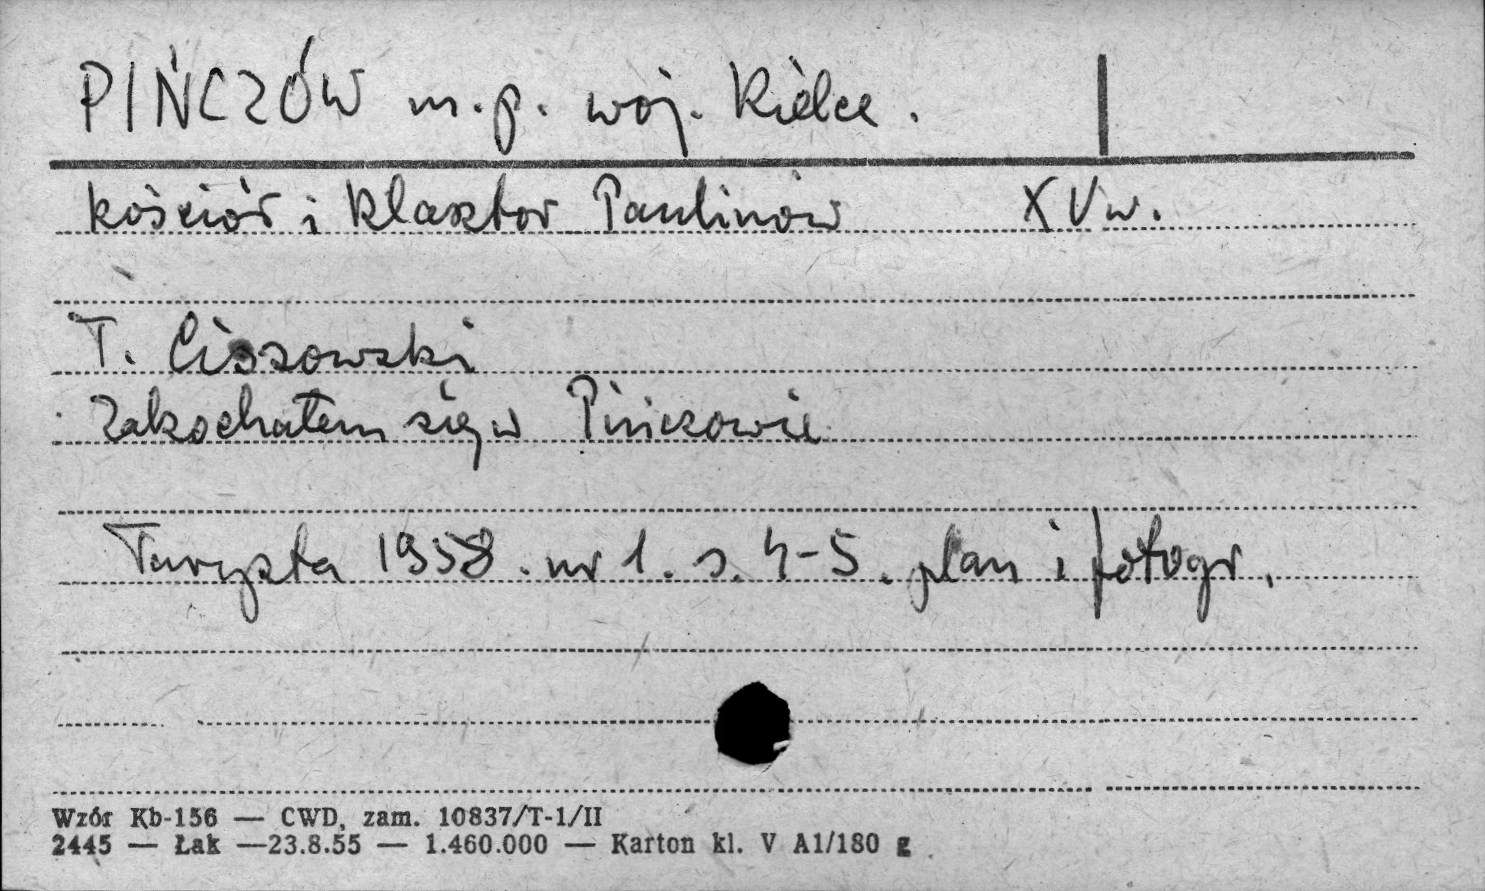 PIŃCZÓW m.p. woj. Kielce.
kościół i klasztor Paulinów XV w.
T. Cisowski
Zakochałem się w Pińczowie
Turysta 1958. nr 1. s. 4-5. plan i fotogr.
Wzór Kb-156 — CWD, zam. 10837/T-1/II
2445 — Łak —23.8.55 — 1.460.000 — Karton kl. V A1/180 g